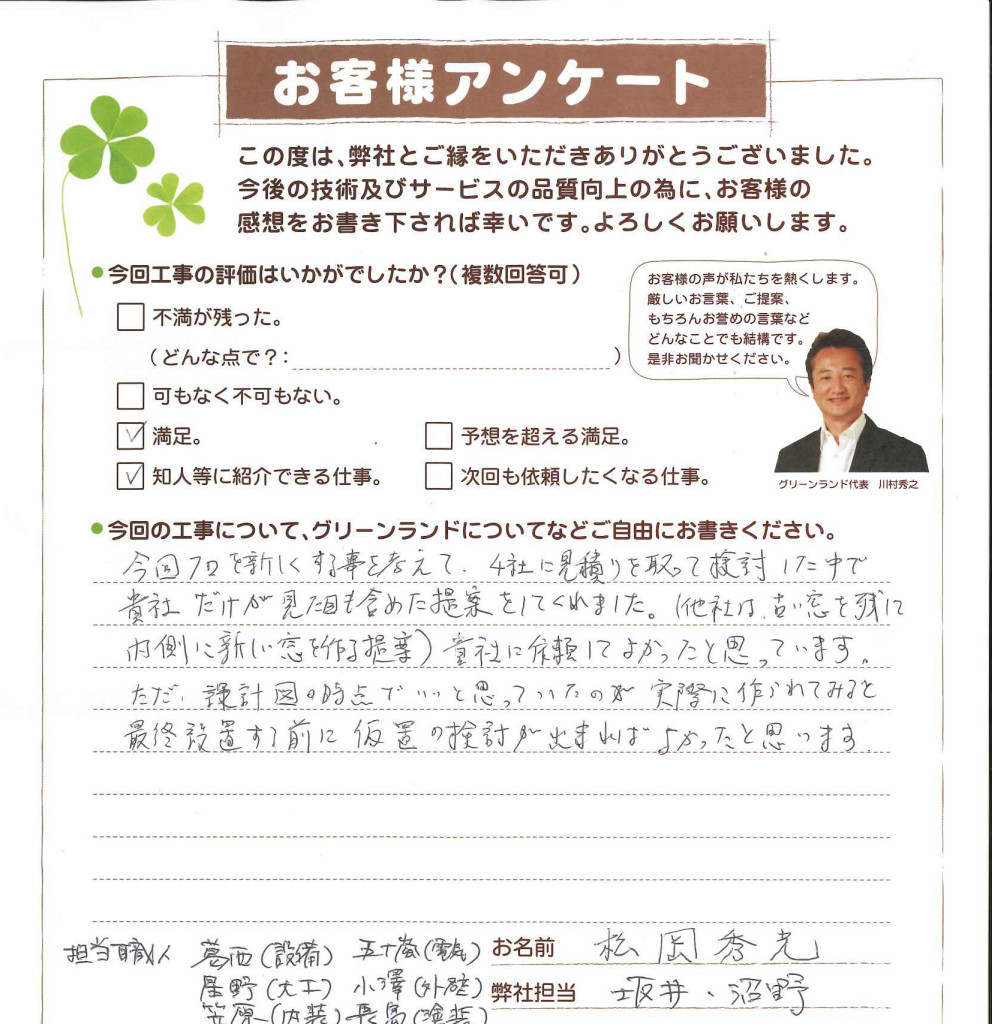 お客様アンケート
この度は、弊社とご縁をいただきありがとうございました。
今後の技術及びサービスの品質向上の為に、お客様の
感想をお書き下されば幸いです。よろしくお願いします。
今回工事の評価はいかがでしたか？（複数回答可）
不満が残った。
（どんな点で？： ）
可もなく不可もない。
満足。
予想を超える満足。
知人等に紹介できる仕事。
次回も依頼したくなる仕事。
お客様の声が私たちを熱くします。
厳しいお言葉、ご提案、
もちろんお誉めの言葉など
どんなことでも結構です。
是非お聞かせください。
グリーンランド代表　川村秀之
今回の工事について、グリーンランドについてなどご自由にお書きください。
今回フロを新しくする事を考えて、4社に見積りを取って検討した中で
貴社だけが見た目も含めた提案をしてくれました。（他社は、古い窓を残して
内側に新しい窓を作る提案）貴社に依頼してよかったと思っています。
ただ、設計図の時点でいいと思っていたのが実際に作られてみると
最終設置する前に仮置の検討が出来ればよかったと思います。
担当職人 葛西（設備） 五十嵐（電気）
お名前 松岡秀光
星野（大工） 小澤（外壁）
弊社担当 坂井、沼野
笠原（内装） 長島（塗装）